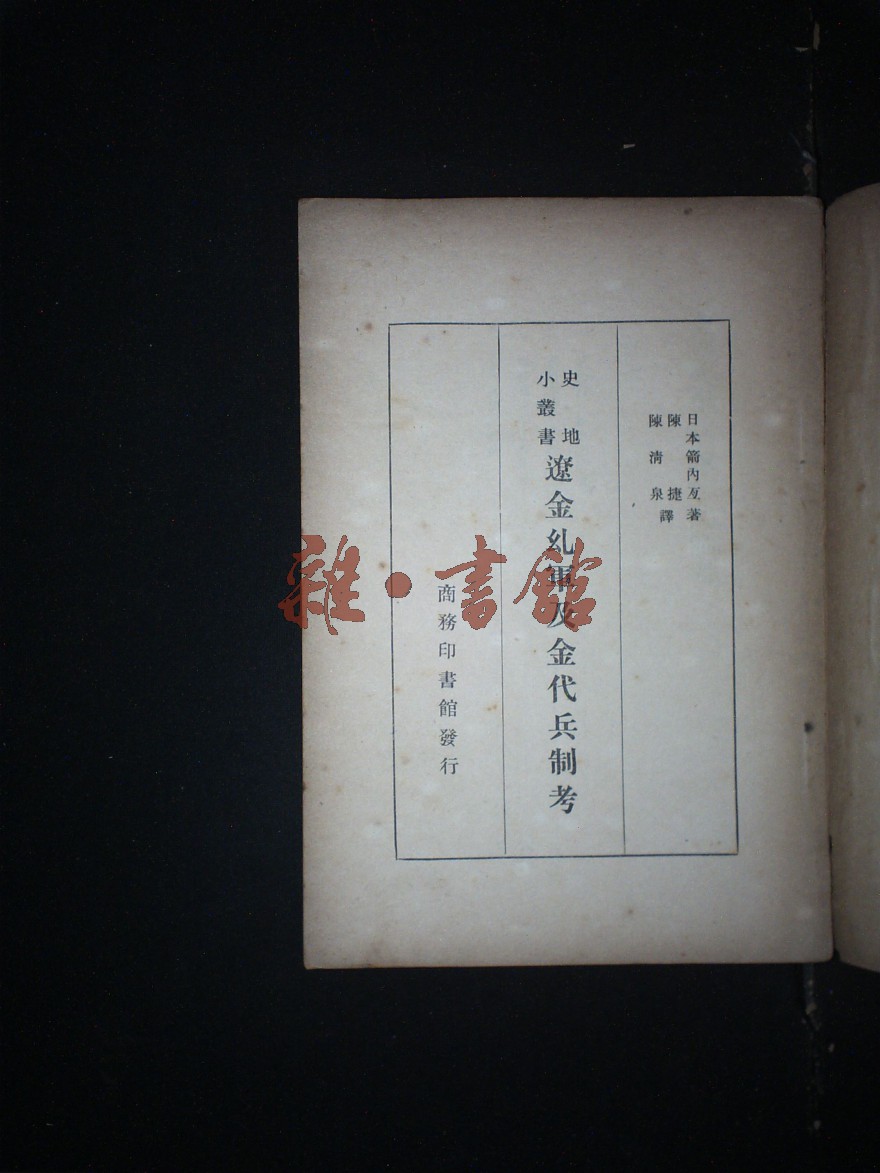 日本箭內亙著
陳捷
陳清泉譯
史地
小叢書
遼金乣軍及金代兵制考
商務印書館發行
雜·書館